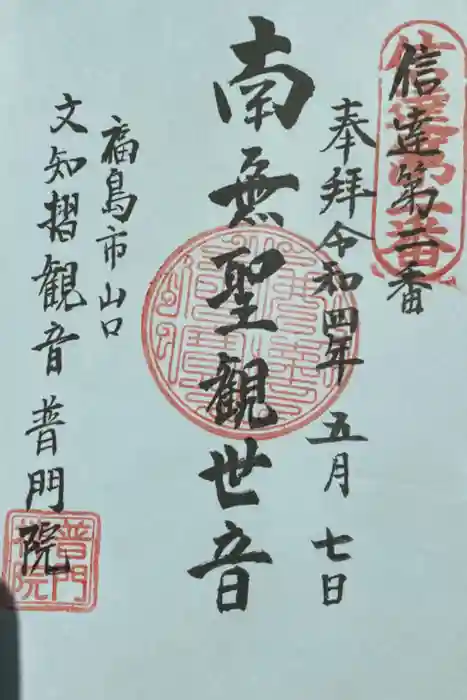 信達第二番
奉拝令和四年五月七日
南無聖観世音
福島市山口
文知摺観音普門院
普門
院